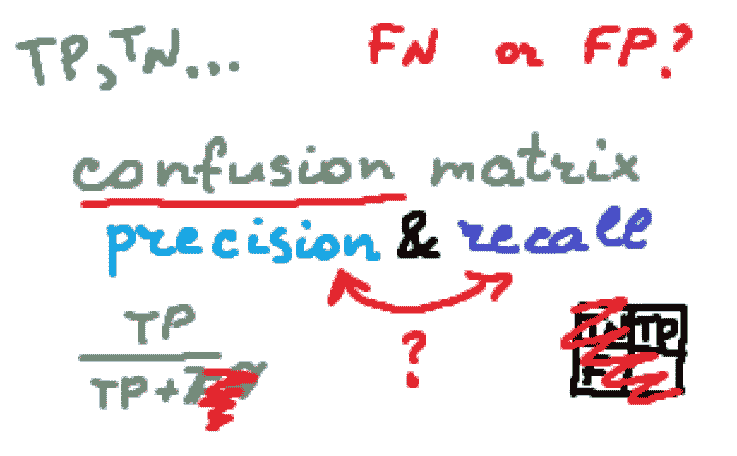 TP, TN... FN or FP?
confusion matrix
precision & recall
TP
TP+
?
TP